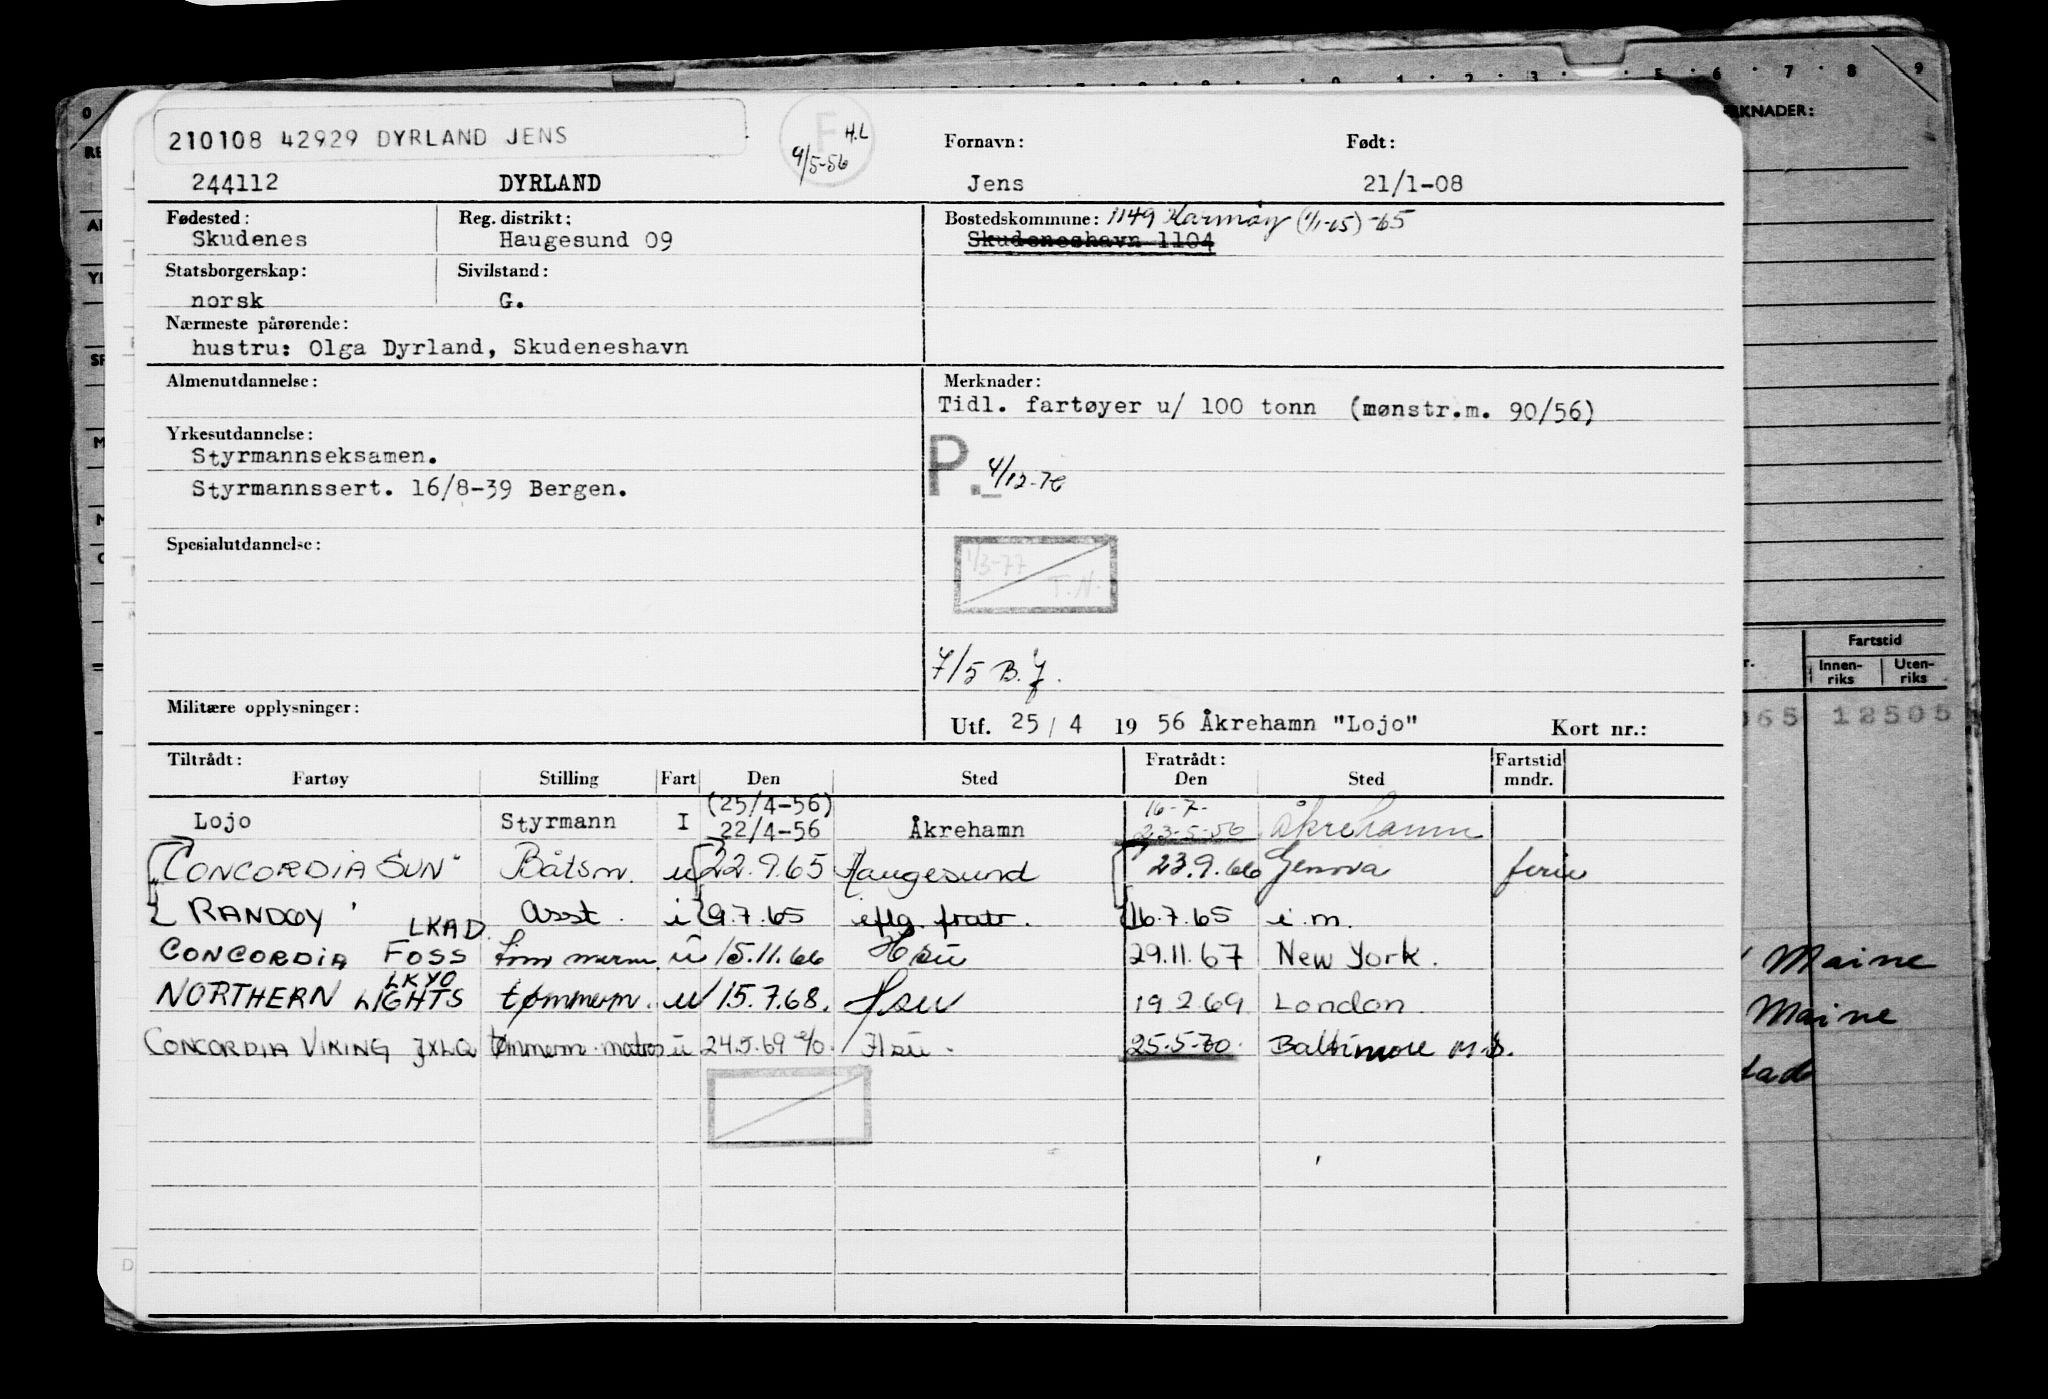 210108 42929 DYRLAND JENS
H.L
9/5-56
Fornavn: Født:
244112 DYRLAND Jens 21/1-08
Fødested: Reg. distrikt: Bostedskommune: 1149 Karmøy (1/1-65) -65
Skudenes Haugesund 09 Skudeneshavn 1104
Statsborgerskap: Sivilstand:
norsk G.
Nærmeste pårørende:
hustru: Olga Dyrland, Skudeneshavn
Almenutdannelse: Merknader:
Tidl. fartøyer u/ 100 tonn (mønstr.m. 90/56)
Yrkesutdannelse:
Styrmannseksamen.
P. 4/12-70
Styrmannssert. 16/8-39 Bergen.
Spesialutdannelse:
1/3-77
T.N.
7/5 B.J.
Militære opplysninger:
Utf. 25/4 19 56 Åkrehamn "Lojo" Kort nr.:
Tiltrådt: Fratrådt: Fartstid
Fartøy Stilling Fart Den Sted Den Sted mndr.
(25/4-56) 16-7-
Lojo Styrmann I 22/4-56 Åkrehamn 23-5-56 Åkrehamn
"CONCORDIA SUN" Båtsm. u 22.9.65 Haugesund 23.9.66 Genova ferie
RANDØY Asst. i 9.7.65 eflg. fratr. 16.7.65 i.m.
LKAD
CONCORDIA FOSS tømmerm. ü 15.11.66 Hsü 29.11.67 New York.
LKYO
NORTHERN LIGHTS tømmerm. u 15.7.68. Hsu 19.2.69 London.
CONCORDIA VIKING JXLQ tømmerm. matros ü 24.5.69 Hsü. 25.5-70. Baltimore
RKNADER:
Fartstid
Innen-riks Uten-riks
065 12505
Maine
Maine
0 5 6 7 8 9